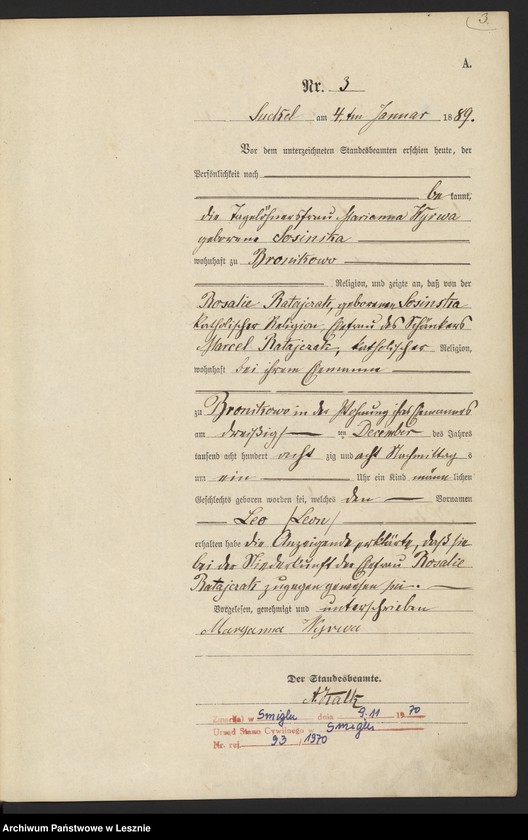 3.
A.
Nr. 3
am 4. ten Januar 1889.
Vor dem unterzeichneten Standesbeamten erschien heute, der
Persönlichkeit nach
be kannt,
die Tagelöhnersfrau Marianna Wyrwa
geborene Sosinska
wohnhaft zu Bronikowo
Religion, und zeigte an, daß von der
Rosalie Ratajczak, geborenen Sosinska
katholischer Religion Ehefrau des Schänkers
Marcel Ratajczak, katholischer Religion,
wohnhaft bei ihrem Ehemanne
zu Bronikowo in der Wohnung ihres Ehemannes
am dreißigst ten December des Jahres
tausend acht hundert acht zig und acht Nachmittag s
um ein Uhr ein Kind männ lichen
Geschlechts geboren worden sei, welches den Vornamen
Leo /Leon/
erhalten habe die Anzeigende erklärte, daß sie
bei der Niederkunft der Ehefrau Rosalie
Ratajczak zugegen gewesen sei.
Vorgelesen, genehmigt und unterschrieben
Maryanna Wyrwa
Der Standesbeamte.
Zmarł(a) w Smiglu dnia 9.11 1970
Urząd Stanu Cywilnego w Smiglu
Nr. rej. 93 / 1970
Archiwum Państwowe w Lesznie